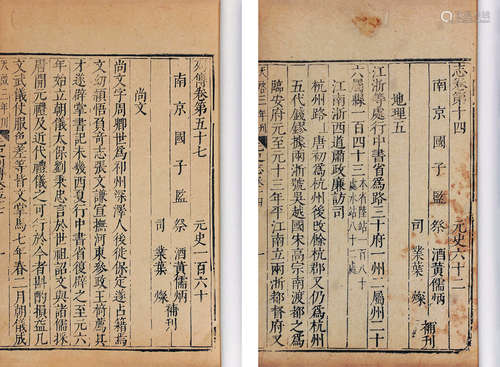 志卷第十四　元史六十二
南京國子監祭酒黃儒炳補刊
司業葉燦
地理五
江浙等處行中書省為路三十府一州二屬州二十
六屬縣一百四十三
江南浙西道肅政廉訪司
杭州路上唐初為杭州後改餘杭郡又仍為杭州
五代錢鏐據兩浙號吳越國宋高宗南渡都之為
臨安府元至元十三年平江南立兩浙都督府又
天啟三年刊
卷第五十七　元史一百六十
南京國子監祭酒黃儒炳補刊
司業葉燦
尚文
尚文字周卿世為祁州深澤人後徙保定遂占籍焉
文幼穎悟負奇志張文謙宣撫河東參政王椅薦其
才遂辟掌書記未幾西夏行中書省復辟之至元六
年始立朝儀太保劉秉忠言於世祖詔文與諸儒採
唐開元禮及近代禮儀之可行於今者與斟酌損益凡
文武儀仗服色差等皆文掌焉七年春二月朝儀成
天啟三年刊